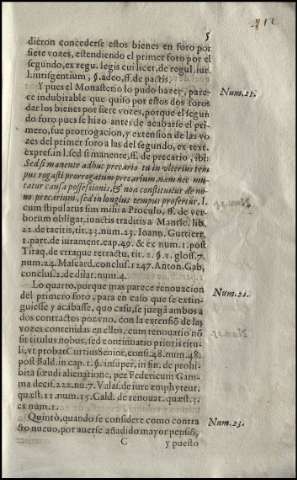 5
dieron concederse estos bienes en foro por
siete vozes, estendiendo el primer foro por el
segundo, ex regu. legis cui licet, de regul. iur.
l. insulgentium, §. adeo, ff. de pactis.
Y pues el Monasterio lo pudo hazer, pare-
ce indubitable que quiso por estos dos foros
dar los bienes por siete vozes, porque el segun
do foro pues se hizo antes de acabarse el pri-
mero, fue prorrogacion, y extension de las vo-
zes del primer foro a las del segundo, ex text.
expres. in l. sed si manente, ff. de precario, ibi:
Sed si manente adhuc precario tu in vlterius tem
pus rogasti prorrogatur precarium, nam nec mu-
tatur causa possessionis, & non constituitur de no-
uo precarium, sed in longius tempus profertur, l.
cum stipulatus sim mihi a Proculo, ff. de ver-
borum obligat. iunctis traditis a
lib.
22. de tacitis, tit. 23. num. 23. Ioann. Gutierr.
1. part. de iurament. cap. 49. & ex num. 1. post
Tiraq. de vtraque retractu, tit. 1. §. 2. gloss. 7.
num. 24. Mascard. conclus. 1247. Anton. Gab.
conclus. 2. de dilat. num. 4.
Lo quarto, porque mas parece renouacion
del primero foro, para en caso que se extin-
guiesse y acabasse, quo casu, se juzgā ambos a
dos contractos por vno, con la extensiō de las
vozes contenidas en ellos, cum renouatio nō
sit titulus nobus, sed continuatio prioris titu-
li, vt probat Curtius Senior, cons. 48. num. 48.
post Bald. in cap. 1. §. insuper, in fin. de prohi-
bita fœudi alienatione, per Federicum: Gam-
ma decis. 222. nu. 7. Valas. de iure emphyteut.
quæst. 11. num. 15. Cald. de renouat. quæst. 1.
ex num. 1.
Quinto, quando se considere como contra
cto nueuo, por auerse añadido mayor pension,
C y puesto
Num. 21.
Num. 22.
Num. 23.